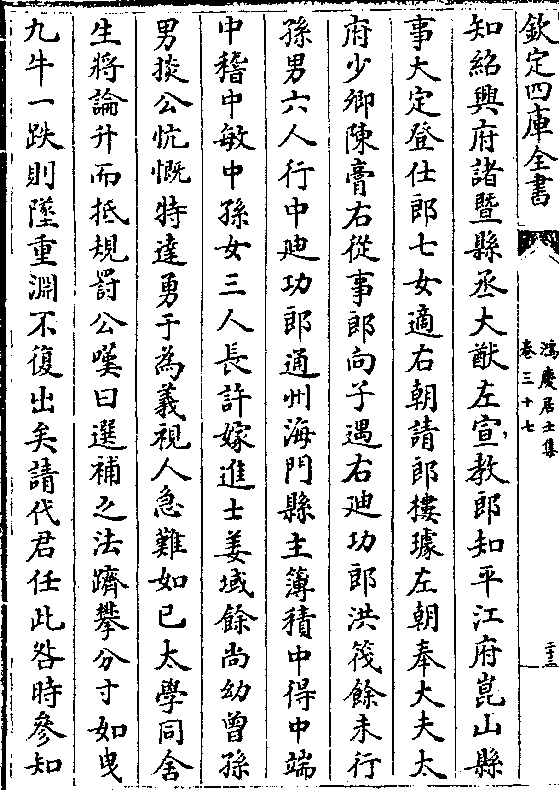 欽定四庫全書
鴻慶居士集
卷三十七
二十三
知紹興府諸暨縣丞大猷左宣教郎知平江府崑山縣
事大定登仕郎七女適右朝請郎摟璩左朝奉大夫太
府少卿陳膏右從事郎向子遇右廸功郎洪筏餘未行
孫男六人行中廸功郎通州海門縣主簿積中得中端
中稽中敏中孫女三人長許嫁進士姜域餘尚幼曾孫
男掞公忼慨特達勇于為義視人急難如已太學同舍
生將論升而抵規罰公嘆曰選補之法躋攀分寸如曳
九牛一跌則墜重淵不復出矣請代君任此咎時參知